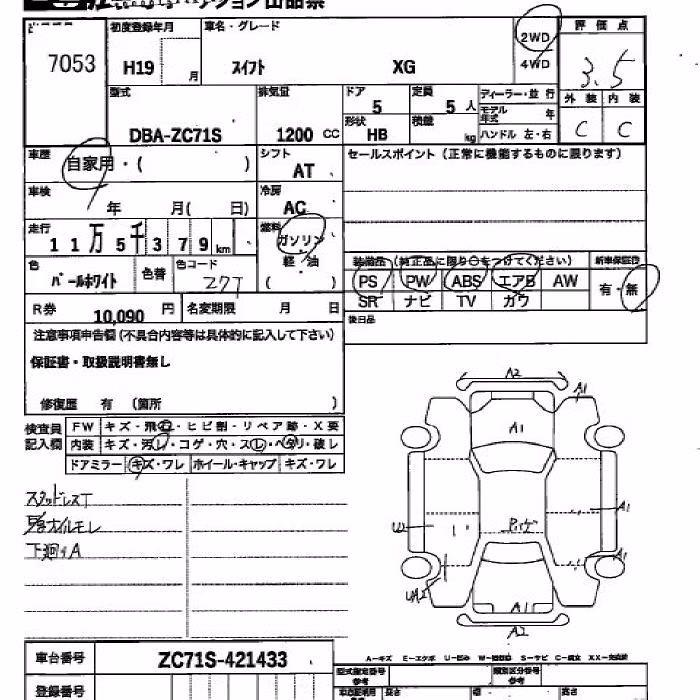 7053
初度登録年月 車名・グレード
H19 月 スイフト XG
2WD
4WD
評価点
3.5
外装 内装
C C
型式 排気量 ドア 定員 ディーラー・並行
DBA-ZC71S 1200 CC 5 5 人
モデル年式 年
形状 積載
HB kg ハンドル 左・右
車歴 自家用・( )
シフト
AT
セールスポイント(正常に機能するものに限ります)
車検
年 月( 日)
冷房
AC
走行
11万5千379km
燃料
ガソリン
・
軽・油
( )
装備品(純正品に限り○をつけてください) 新車保証書
PS PW ABS エアB AW
SR ナビ TV カワ
有・無
色 色替 色コード
パールホワイト Z7T
R券 10,090 円 名変期限 月 日
後日品
注意事項申告欄(不具合内容等は具体的に記入して下さい)
保証書・取扱説明書無し
修復歴 有 (箇所 )
検査員
記入欄
FW キズ・飛石・ヒビ割・リペア跡・X要
内装 キズ・汚レ・コゲ・穴・スレ・ヘタリ・破レ
ドアミラー キズ・ワレ ホイール・キャップ キズ・ワレ
スタッドレスT
下廻りA
A2
A1
A1
A1
W
A1
UA2
A1
A2
車台番号 ZC71S-421433
A-キズ E-エクボ U-凹み
S-サビ
登録番号
型式指定番号 参考
類別区分番号 参考
長さ
幅
高さ